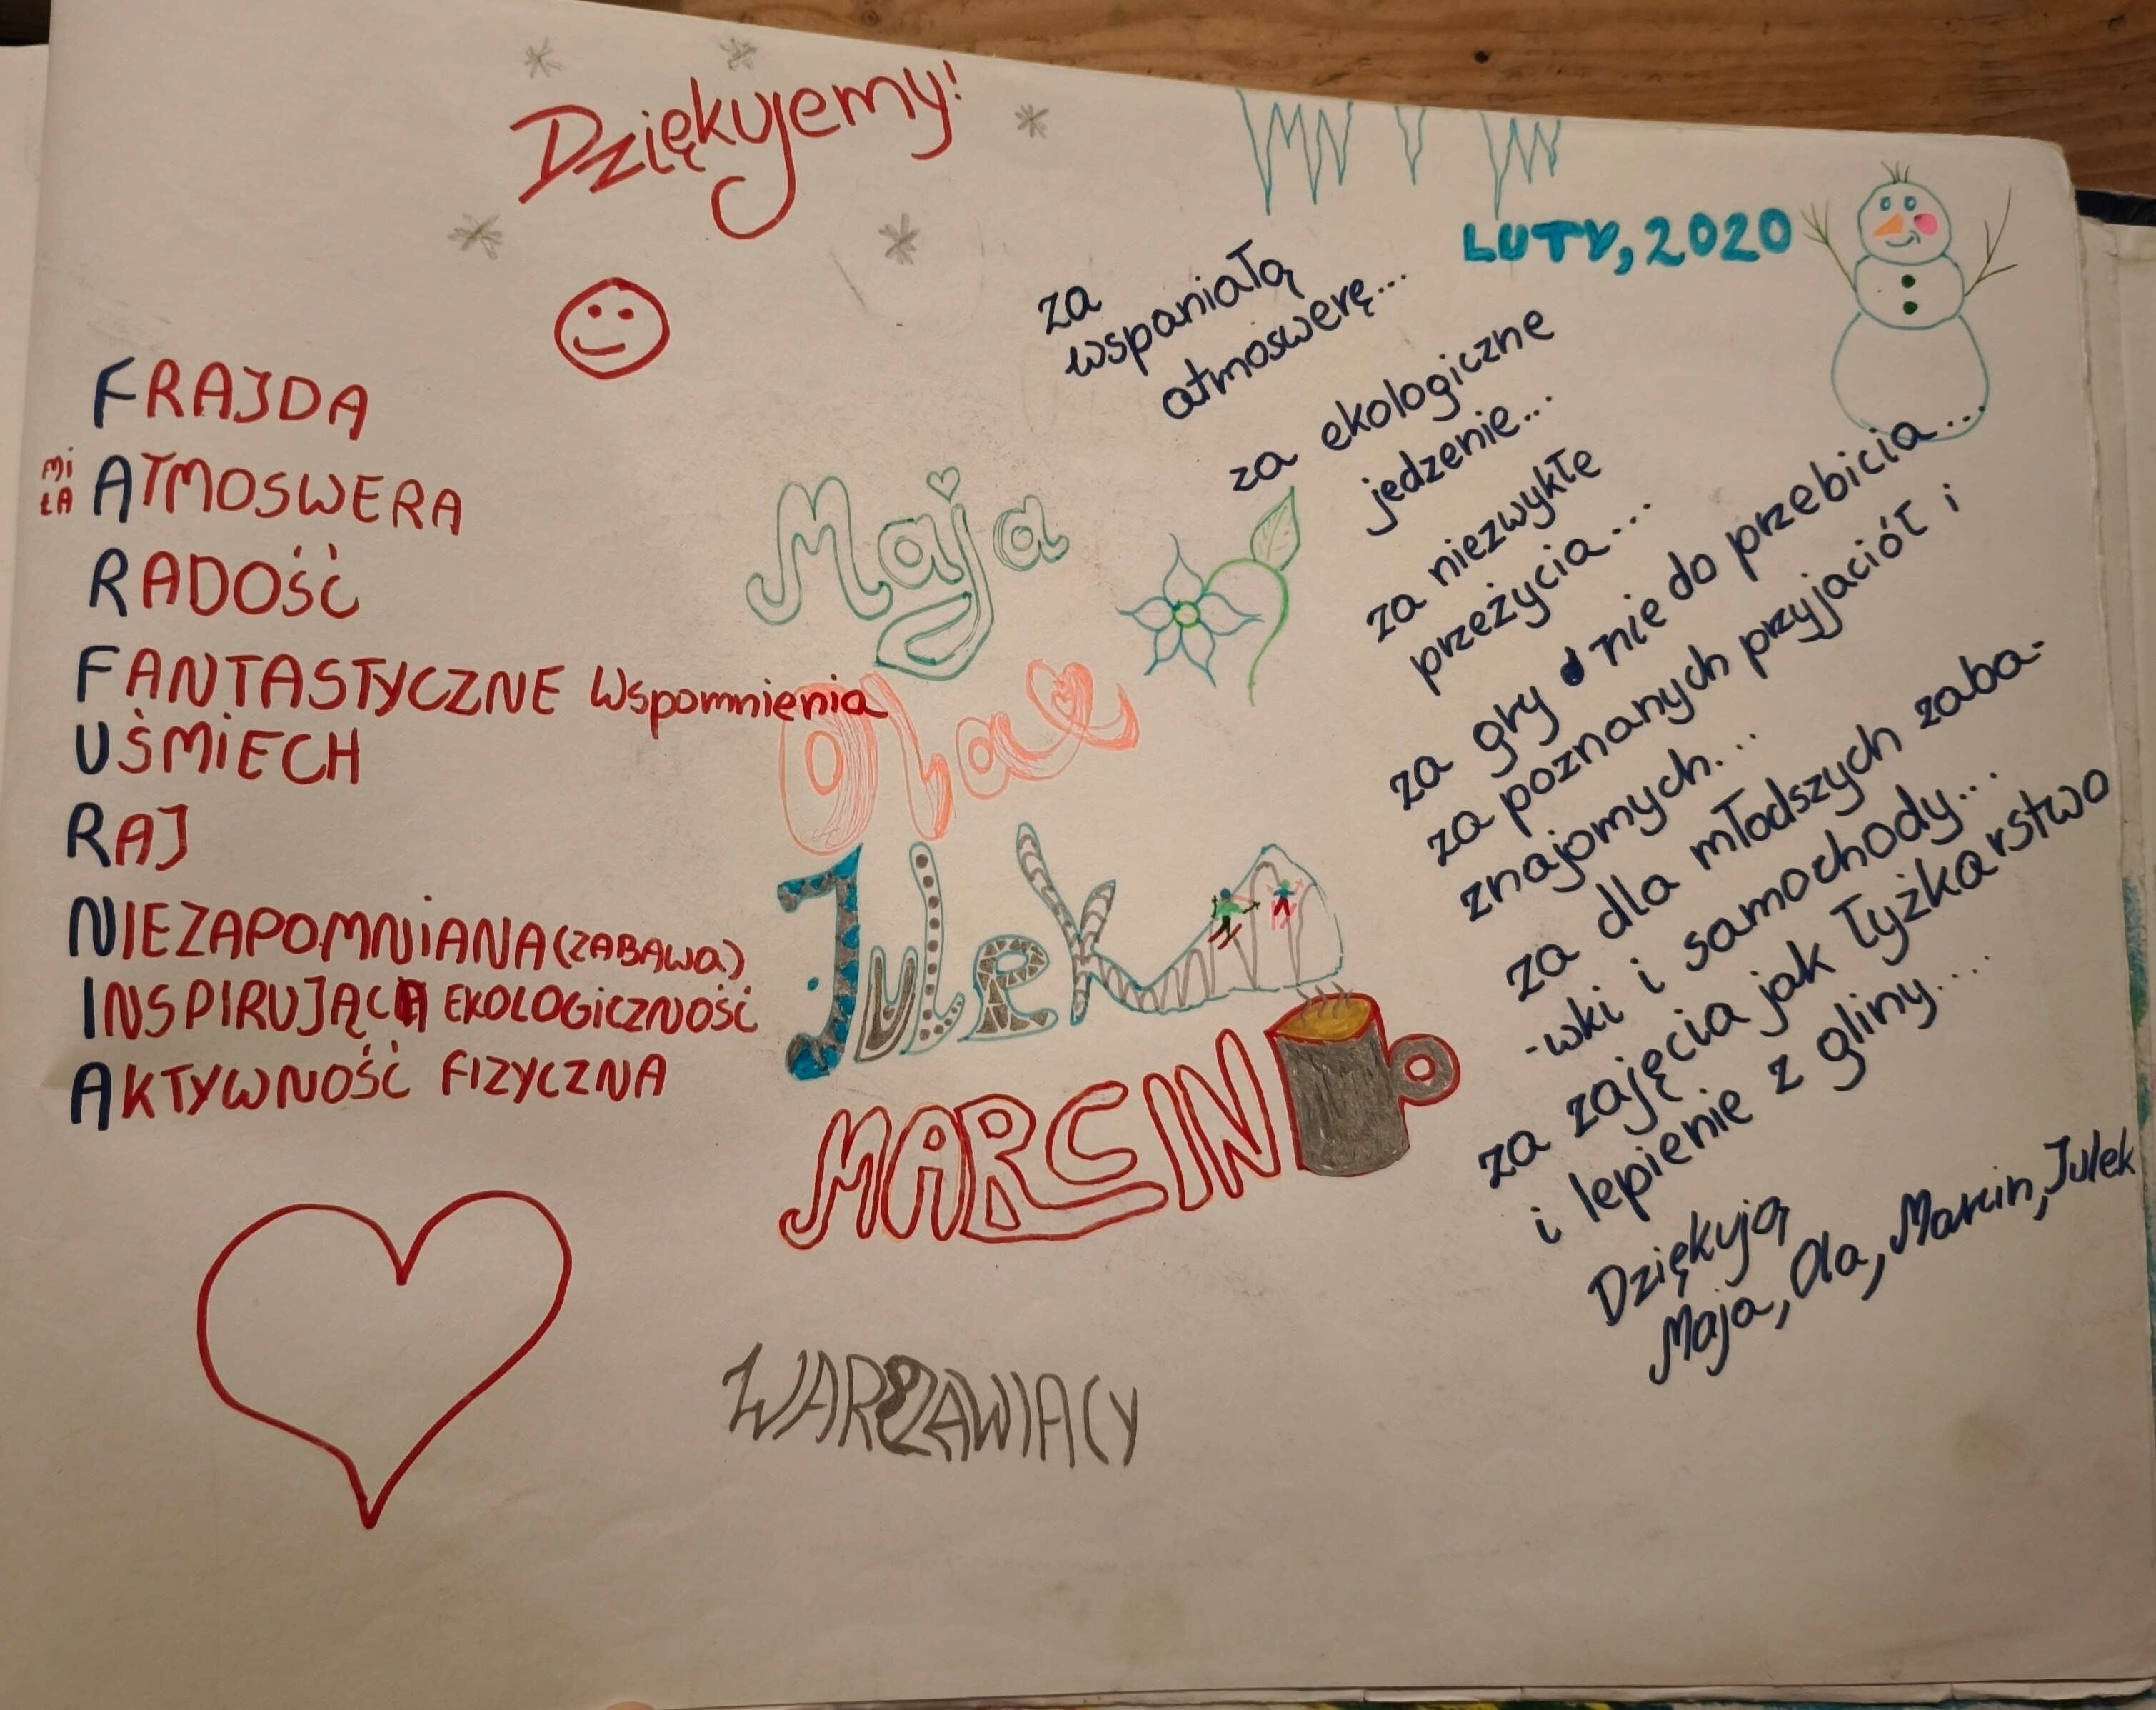 Dziękujemy!
LUTY, 2020
FRAJDA
MiŁA ATMOSWERA
RADOŚĆ
FANTASTYCZNE Wspomnienia
UŚMiECH
RAJ
NIEZAPOMNiANA (ZABAWA)
INSPIRUJĄCA EKOLOGiCZNOŚĆ
AKTYWNOŚĆ FIZYCZNA
Maja
Ola
Julek
MARCIN
WARSZAWIACY
za
wspaniałą
atmoswerę...
za ekologiczne
jedzenie...
za niezwykłe
przeżycia...
za gry nie do przebicia...
za poznanych przyjaciół i
znajomych...
za dla młodszych zaba-
-wki i samochody...
za zajęcia jak łyżkarstwo
i lepienie z gliny...
Dziękują
Maja, Ola, Marcin, Julek